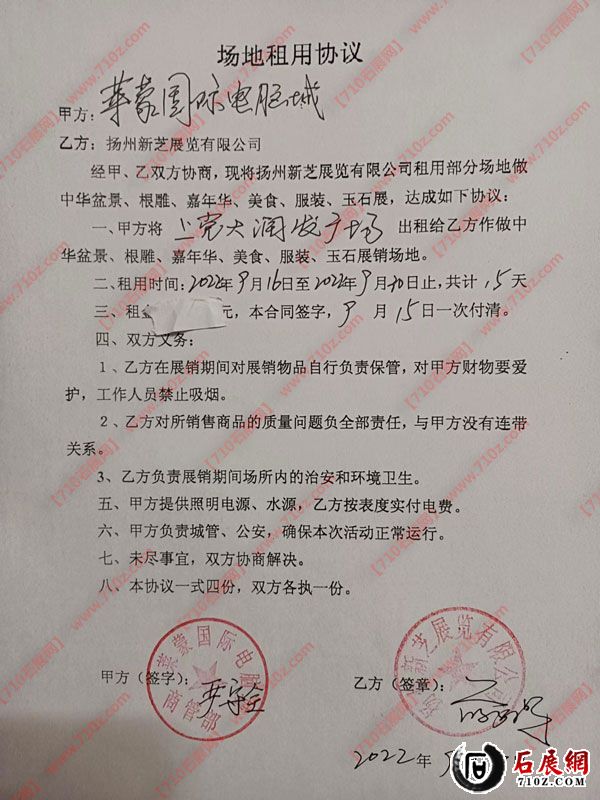 场地租用协议
甲方：华蒙国际电脑城
乙方：扬州新芝展览有限公司
经甲、乙双方协商，现将扬州新芝展览有限公司租用部分场地做
中华盆景、根雕、嘉年华、美食、服装、玉石展，达成如下协议：
一、甲方将 上党大润发广场 出租给乙方作做中
华盆景、根雕、嘉年华、美食、服装、玉石展销场地。
二、租用时间：2022年9月16日至2022年9月30日止，共计15天
三、租金 元，本合同签字，9月15日一次付清。
四、双方义务：
1、乙方在展销期间对展销物品自行负责保管，对甲方财物要爱
护，工作人员禁止吸烟。
2、乙方对所销售商品的质量问题负全部责任，与甲方没有连带
关系。
3、乙方负责展销期间场所内的治安和环境卫生。
五、甲方提供照明电源、水源，乙方按表度实付电费。
六、甲方负责城管、公安，确保本次活动正常运行。
七、未尽事宜，双方协商解决。
八、本协议一式四份，双方各执一份。
甲方（签字）：
国际电脑
商管部
乙方（签章）：
新芝展览有限公司
2022年9
石展網
710Z.COM
【710石展网】
www.710z.com